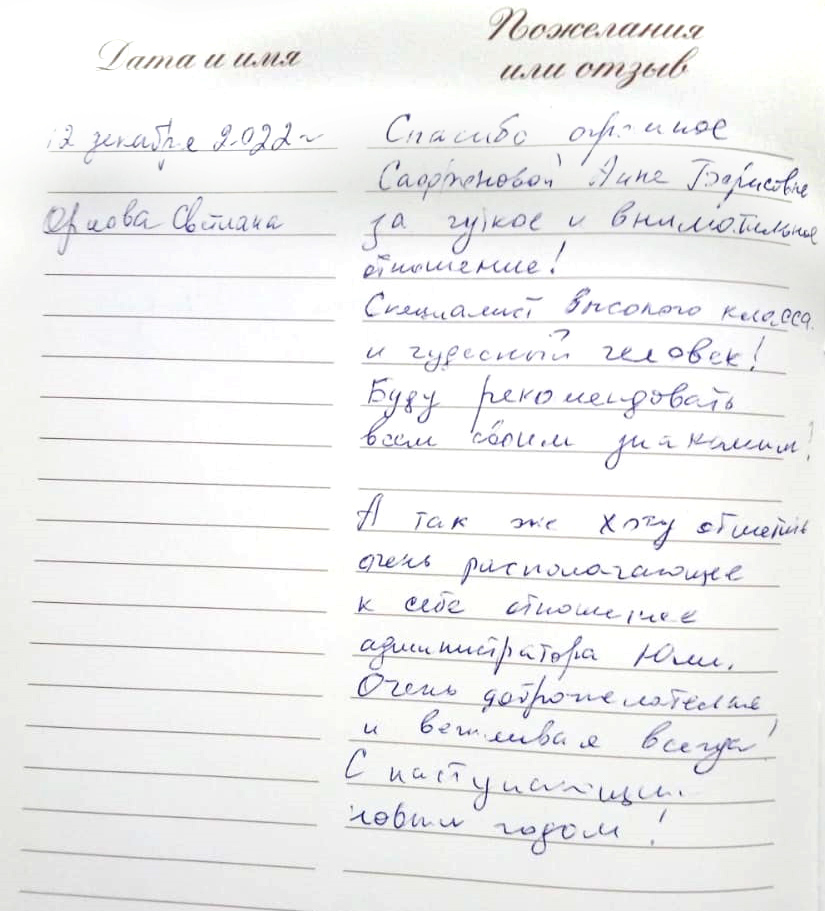 Дата и имя
Пожелания
или отзыв
12 декабря 2022г
Орлова Светлана
Спасибо огромное
Анне Борисовне
за чуткое и внимательное
отношение!
Специалист высокого класса
и чудесный человек!
Буду рекомендовать
всем своим знакомым!
А так же хочу отметить
очень располагающее
к себе отношение
администратора Юли.
Очень доброжелательная
и вежливая всегда!
С наступающим
новым годом!